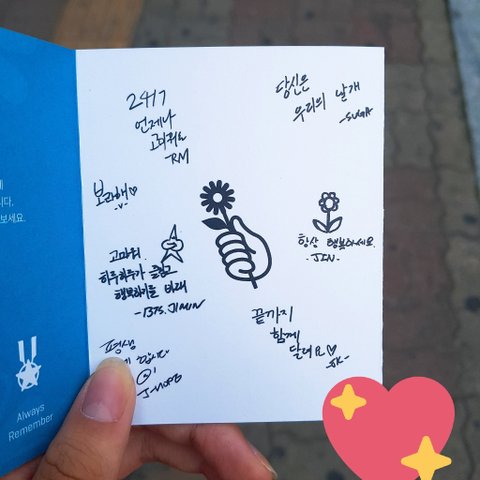 24/7
언제나
고마워요
-RM
당신은
우리의 날개
-SUGA
보라해♡
-V-
고마워.
하루하루가 즐겁고
행복하기를 바래
-BTS. JIMIN
항상 행복하세요.
-JIN-
평생
J-HOPE
끝까지
함께
달려요♡
-JK-
니다.
보세요.
Always
Remember